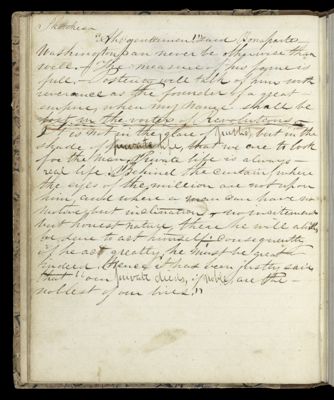 "Ah gentlemen" said Bonaparte
Washington can never be otherwise than
well. The measure of his fame is
full. Posterity will talk of him with
reverence as the founder of a great
empire, when my name shall be
lost in the vortex of Revolutions
It is not in the glare of public, but in the
shade of private life, that we are to look
for the man. Private life is always
real life. Behind the curtain, where
the eyes of the million are not upon
him, and where a man can have no
motive but inclination, no incitement
but honest nature, there he will always
be sure to act himself: consequently
if he act greatly, he must be great
indeed. Hence it has been justly said
that "our private deeds, if noble, are the
noblest of our lives."